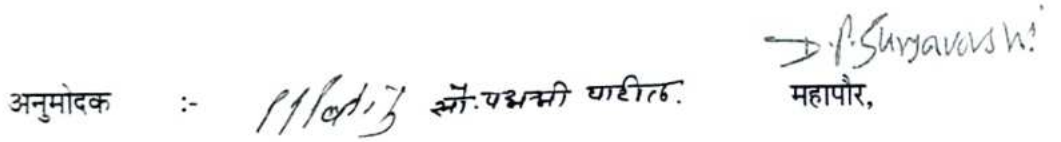 D. P. Suryavanshi
अनुमोदक :- सौ. पद्मश्री पाटील. महापौर,